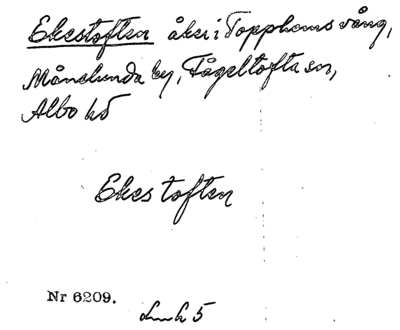 Ekestoften åks i Topphems vång,
Månslunda by, Fågeltofta sn,
Albo hd
Ekes toften
Nr 6209.
5